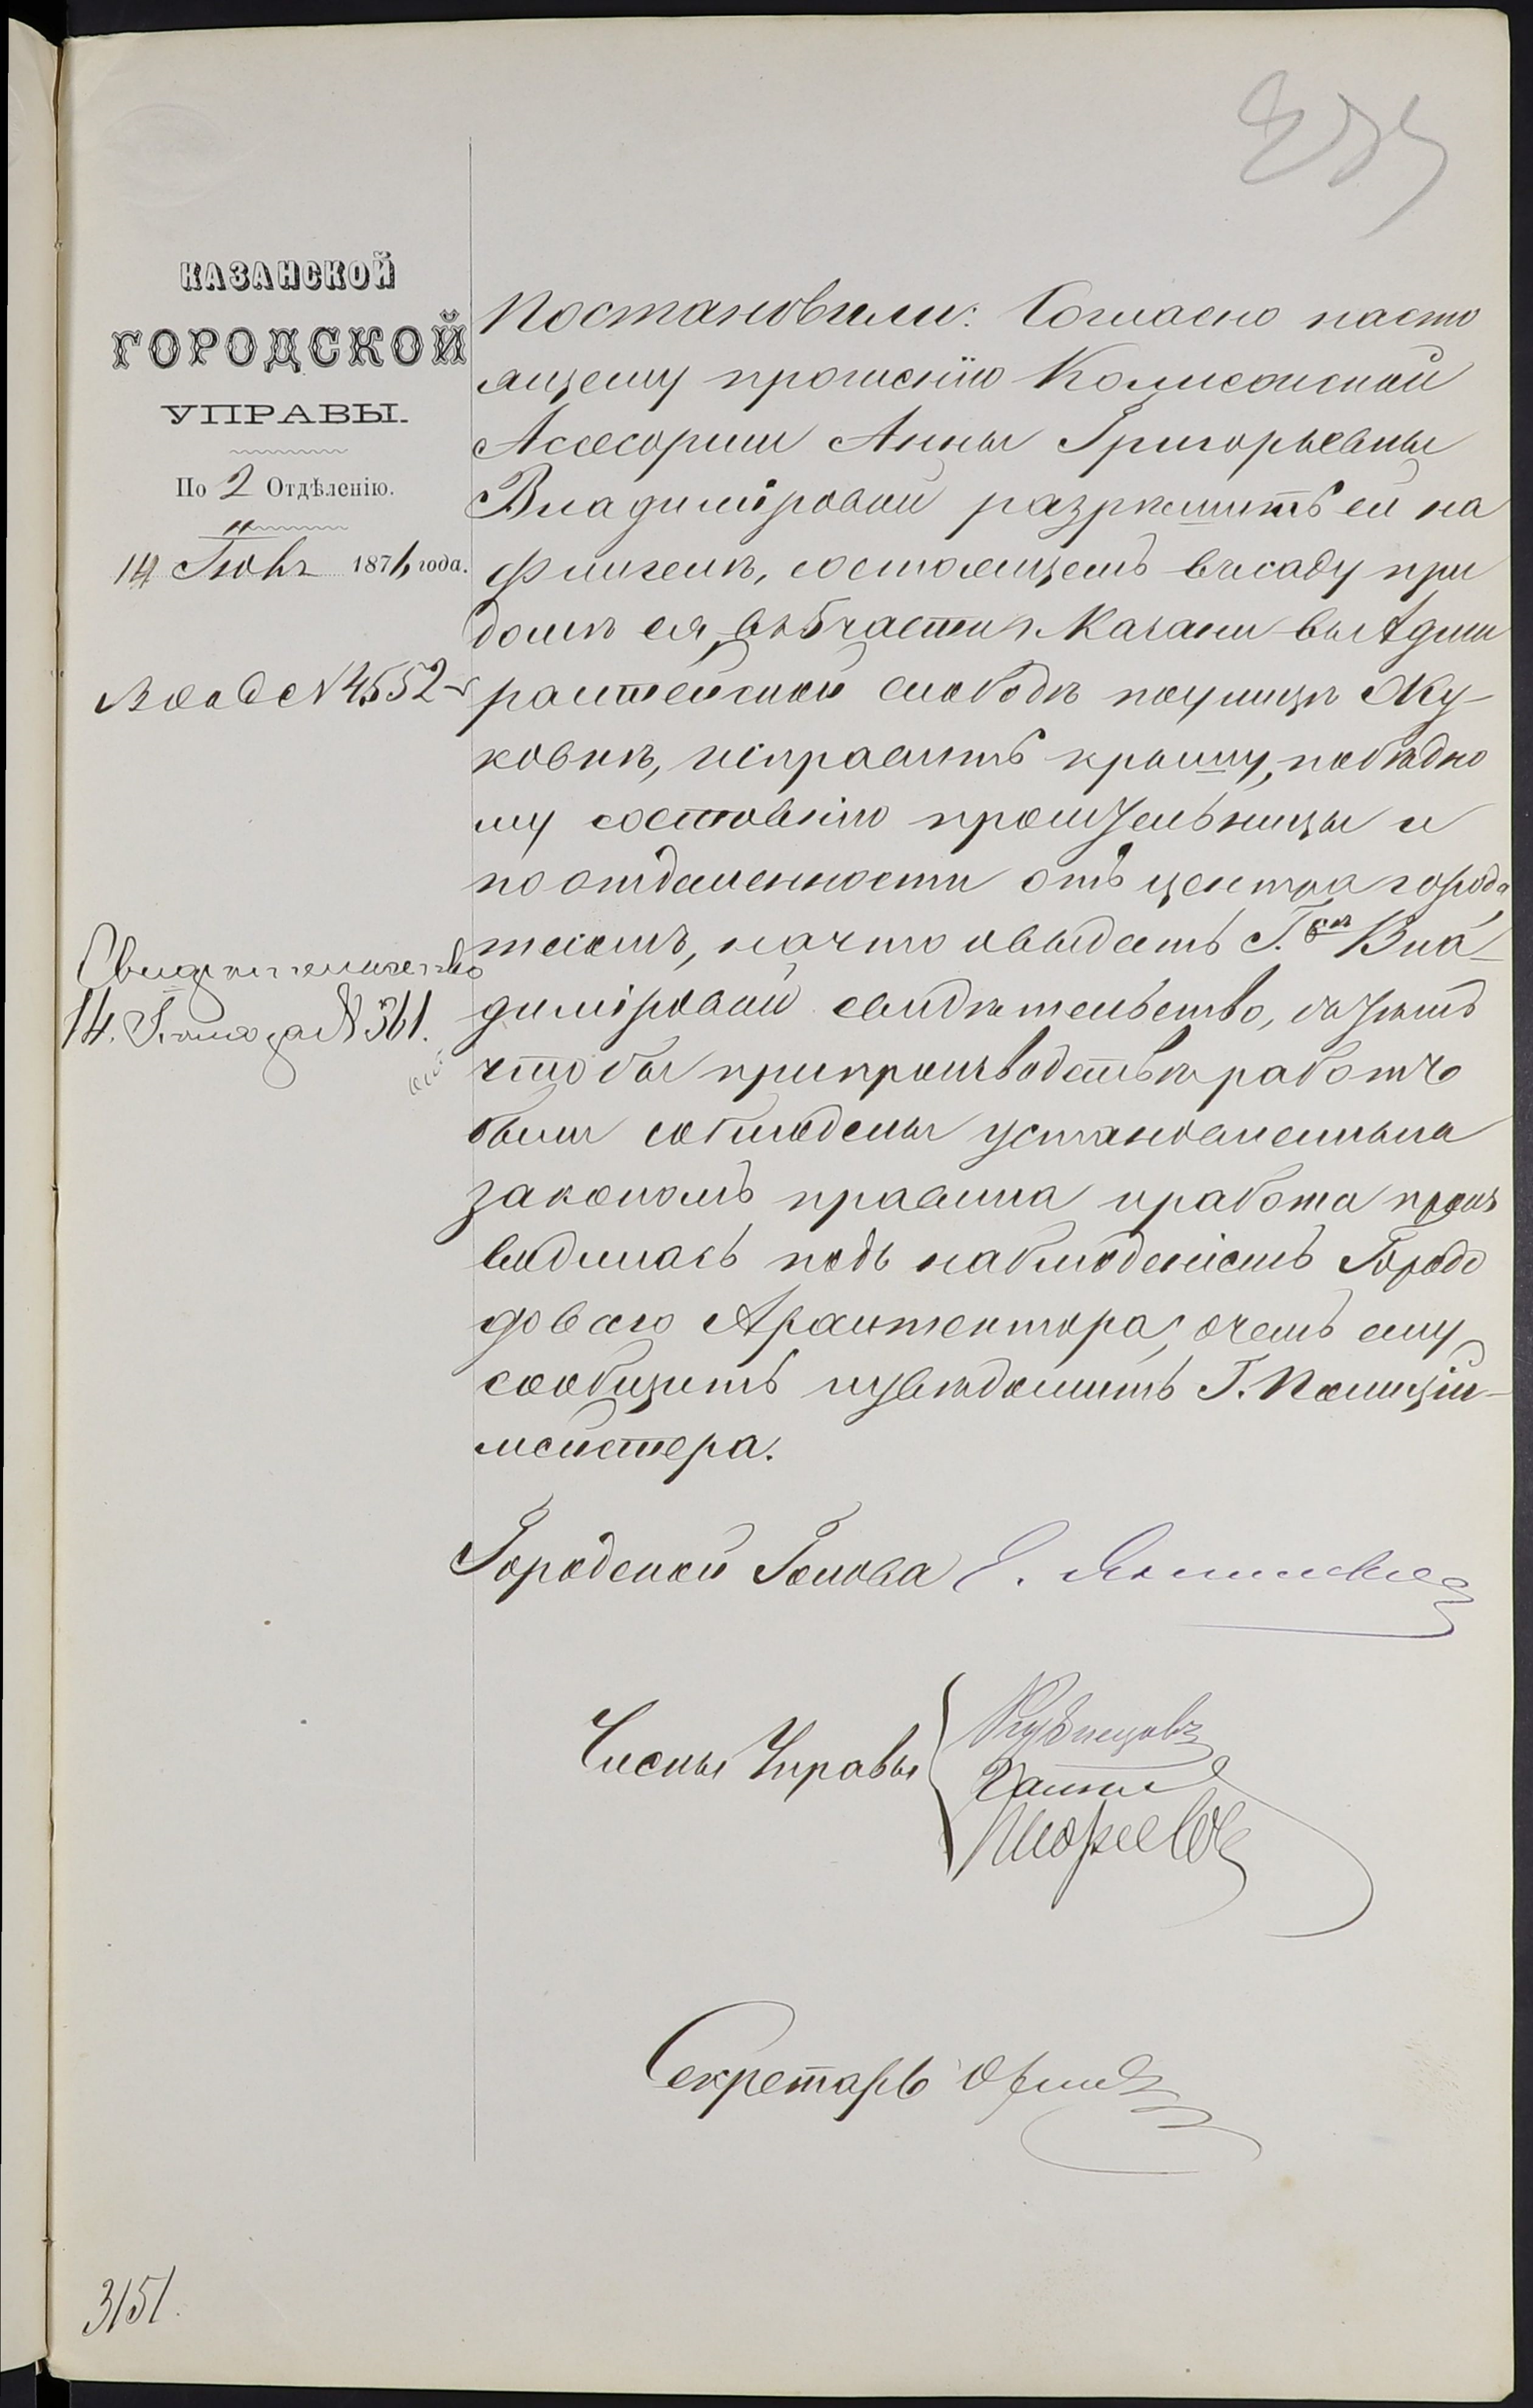 КАЗАНСКОЙ
ГОРОДСКОЙ
УПРАВЫ.
По 2 Отдѣленію.
14 Іюнь 1876 года.
Вход № 4552
Свидѣтельство
14. Іюня за № 361.
Постановили: Согласно насто
ящему прошенію Колежской
Асесорши Анны Григорьевны
Владиміровой разрѣшить ей на
флигелѣ, состоящемъ въ саду при
домѣ ея, въ 5 части г. Казани въ Адми
ралтейской слободѣ по улицѣ Жу-
ковкѣ, исправить крышу, по бѣдно
му состоянію просительницы и
по отдаленности отъ центра города
тесомъ, на что и выдать Г.жѣ Вла-
диміровой свидѣтельство, съ тѣмъ
чтобы при производствѣ работъ
были соблюдены установленныя
закономъ правила и работа произ
водилась подъ наблюденіемъ Горо
доваго Архитектора, о чемъ ему
сообщить и увѣдомить Г. Полицій-
мейстера.
Городской Голова
Члены Управы
Кузнецовъ
Секретарь
3151.